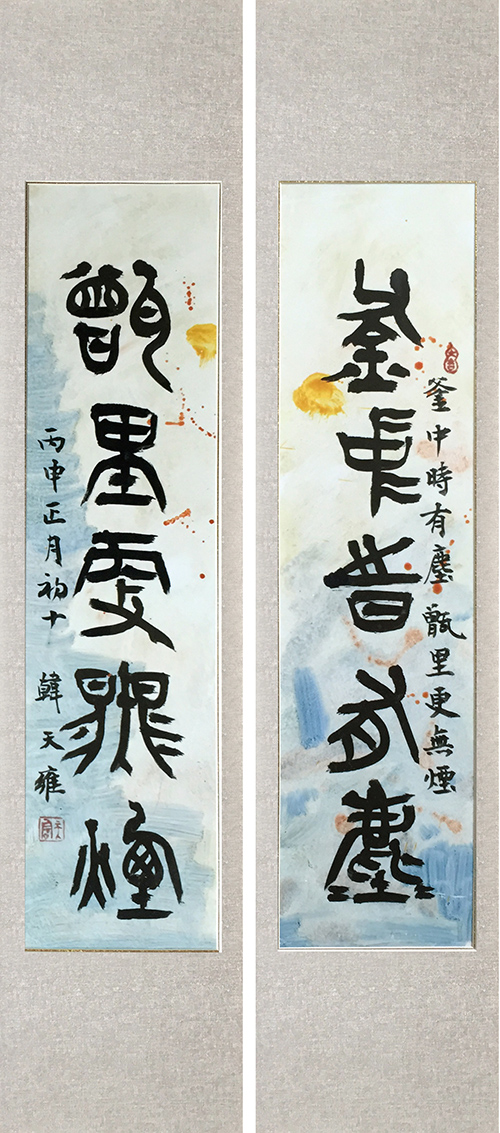 釜中時有塵
釜中時有塵 甑里更無煙
甑里更無煙
丙申正月初十 韓天雍